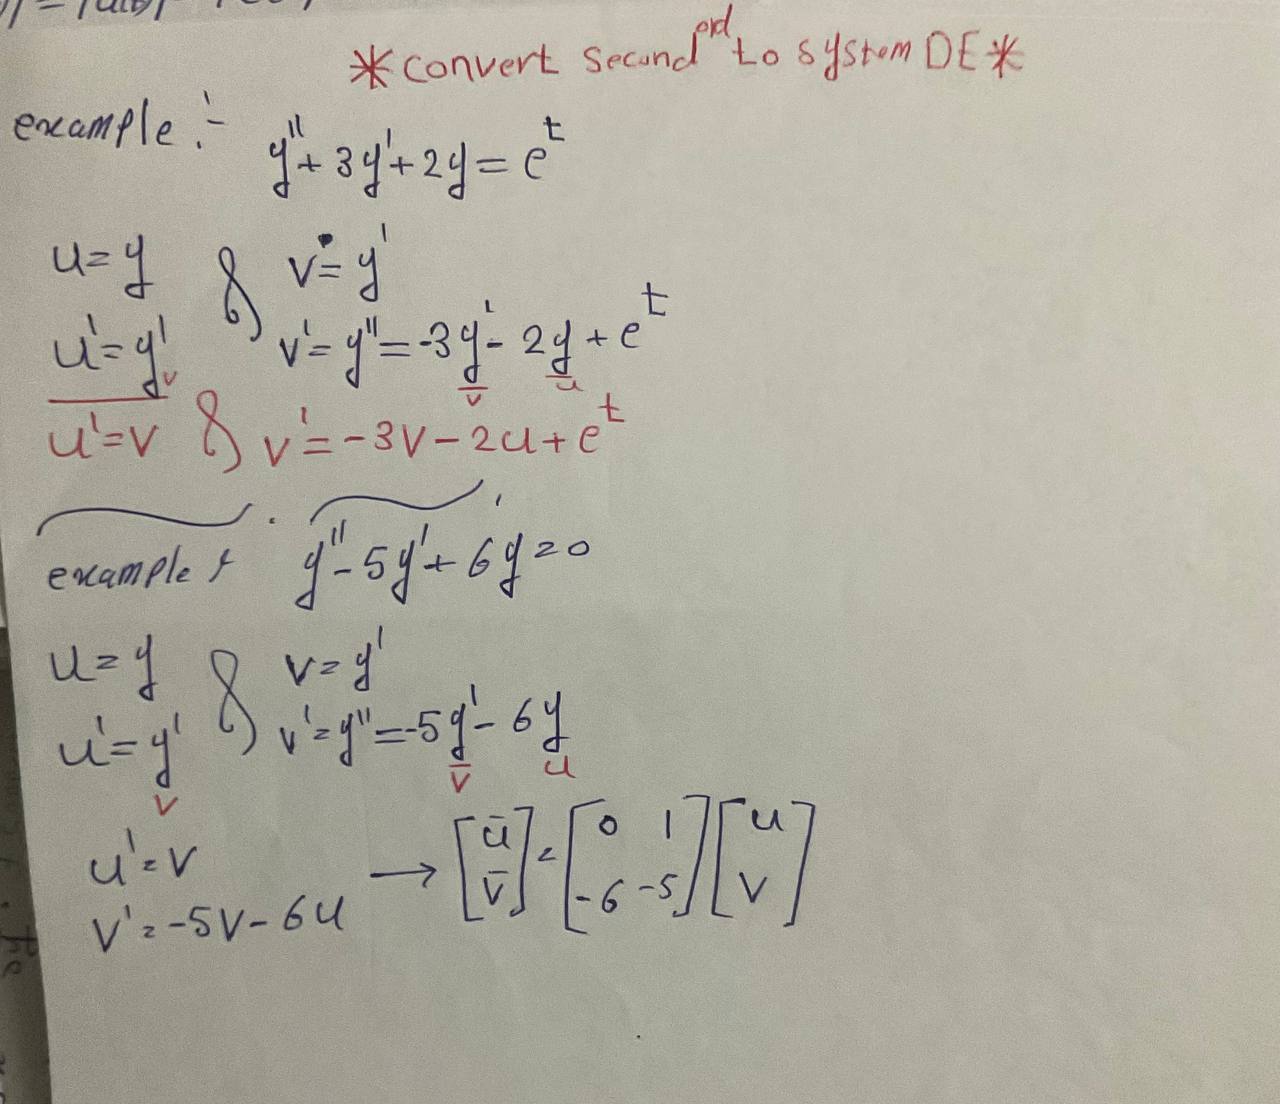 *convert second ord to system DE*
example:-
y''+3y'+2y=e^t
u=y & v=y'
u'=y' v'=y''=-3y'-2y+e^t
v v u
u'=v & v'=-3v-2u+e^t
example: y''-5y'+6y=0
u=y & v=y'
u'=y' v'=y''=-5y'-6y
v v u
u'=v
v'=-5v-6u → [ū v̄]=[0 1 -6 -5][u v]